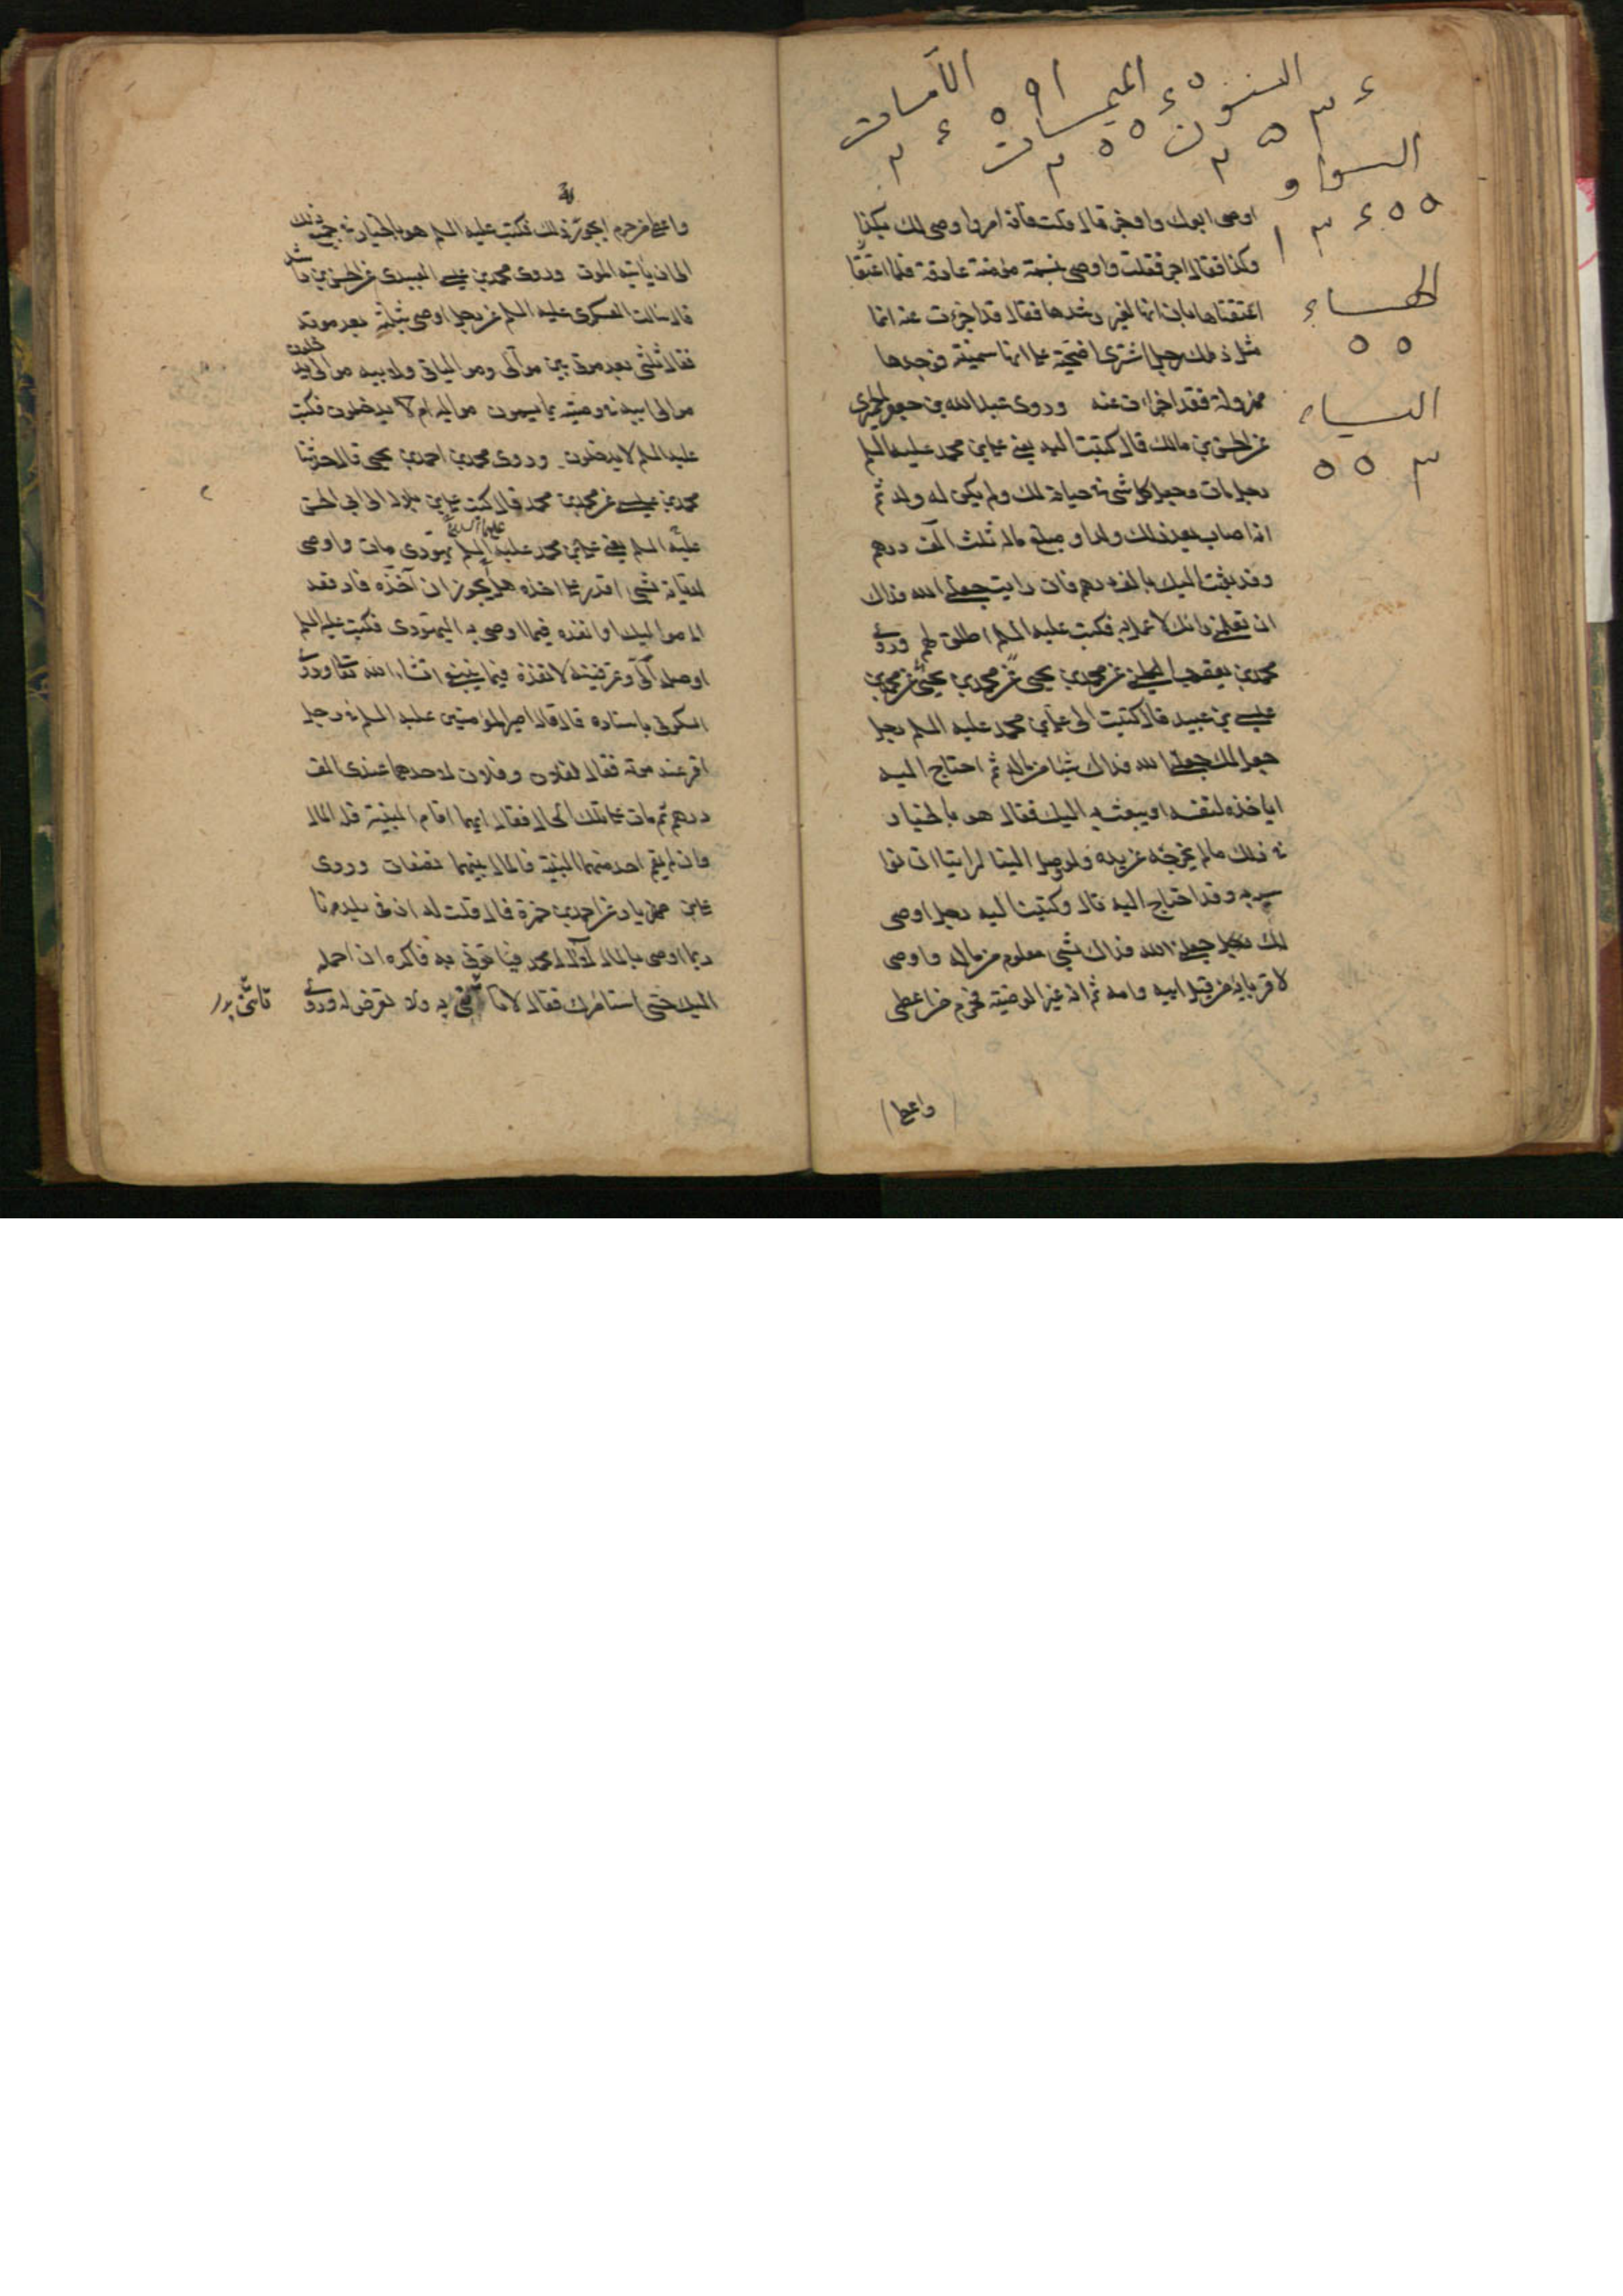 اللامات
الميمات
النون
الواو
الهاء
الياء
اوصى ابوك واوخر قال قلت فانه امر واوصى لك بكذا
وكذا فقال اجز فقلت واوصى بنسمة مؤمنة عارفة فلما اعتقنا
اعتقناها بان انها لغير رشدها فقال قد اجزءت عنه انما
مثل ذلك رجل اشترى اضحية على انها سمينة فوجدها
مهزولة فقد اجزءت عنه وروى عبد الله بن جعفر الحميرى
عن الحسن بن مالك قال كتبت اليه يعنى على بن محمد عليهما السلم
رجل مات وجعل كل شئ فى حياته لك ولم يكن له ولد ثم
انه اصاب بعد ذلك ولدا ومبلغ ماله ثلث آلف درهم
وقد بعثت اليك بالف درهم فان رايت جعلنى الله فداك
ان تعلمنى رايك لاعمل به فكتب عليه السلم اطلق لهم وروى
محمد بن يعقوب الكلينى عن محمد بن يحيى عن محمد بن يحيى عن محمد بن
عيسى بن عبيد قال كتبت الى على بن محمد عليه السلم رجل
جعل لك جعلنى الله فداك شيئا من ماله ثم احتاج اليه
اياخذه لنفسه او يبعث به اليك فقال هو بالخيار
فى ذلك ما لم يخرجه عن يده ولو وصل الينا لراينا ان نوا
سيه به وقد احتاج اليه قال وكتبت اليه رجل اوصى
لك جعلنى الله فداك بشئ معلوم من ماله واوصى
لاقربائه من قبل ابيه وامه ثم انه غير الوصية فحرم من اعطى
واعطى
واعطى من حرم ايجوز ذلك فكتب عليه السلم هو بالخيار فى جميع ذلك
الى ان ياتيه الموت وروى محمد بن عيسى العبيدى عن الحسن بن راشد
قال سالت العسكرى عليه السلم عن رجل اوصى بثلثه بعد موته
فقال ثلثى بعد موتى بين موالى ومولياتى ولابيه موالى يدخلون
موالى ابيه فى وصيته بما يسمون مواليه ام لا يدخلون فكتب
عليه السلم لا يدخلون وروى محمد بن احمد بن يحيى قال حدثنا
محمد بن عيسى عن محمد بن محمد قال كتب على بن بلال الى ابى الحسن
عليه السلم يعنى على بن محمد عليه السلم يهودى مات واوصى
لديانه بشئ اقدر على اخذه هل يجوز ان آخذه فادفعه
الى مواليك او انفذه فيما اوصى به اليهودى فكتب عليه السلم
اوصله الى وعرفنيه لانفذه فيما ينبغى انشاء الله تعالى وروى
السكونى باسناده قال قال امير المؤمنين عليه السلم فى رجل
اقر عند موته فقال لفلان وفلان لاحدهما عندى الف
درهم ثم مات على تلك الحال فقال ايهما اقام البينة فله المال
فان لم يقم احد منهما البينة فالمال بينهما نصفان وروى
على بن مهزيار عن احمد بن حمزة قال قلت له ان فى بلدنا
ربما اوصى بالمال لآل محمد فياتونى به فاكره ان احمله
اليك حتى استامرك فقال لا تاتنى به ولا تعرض له وروى